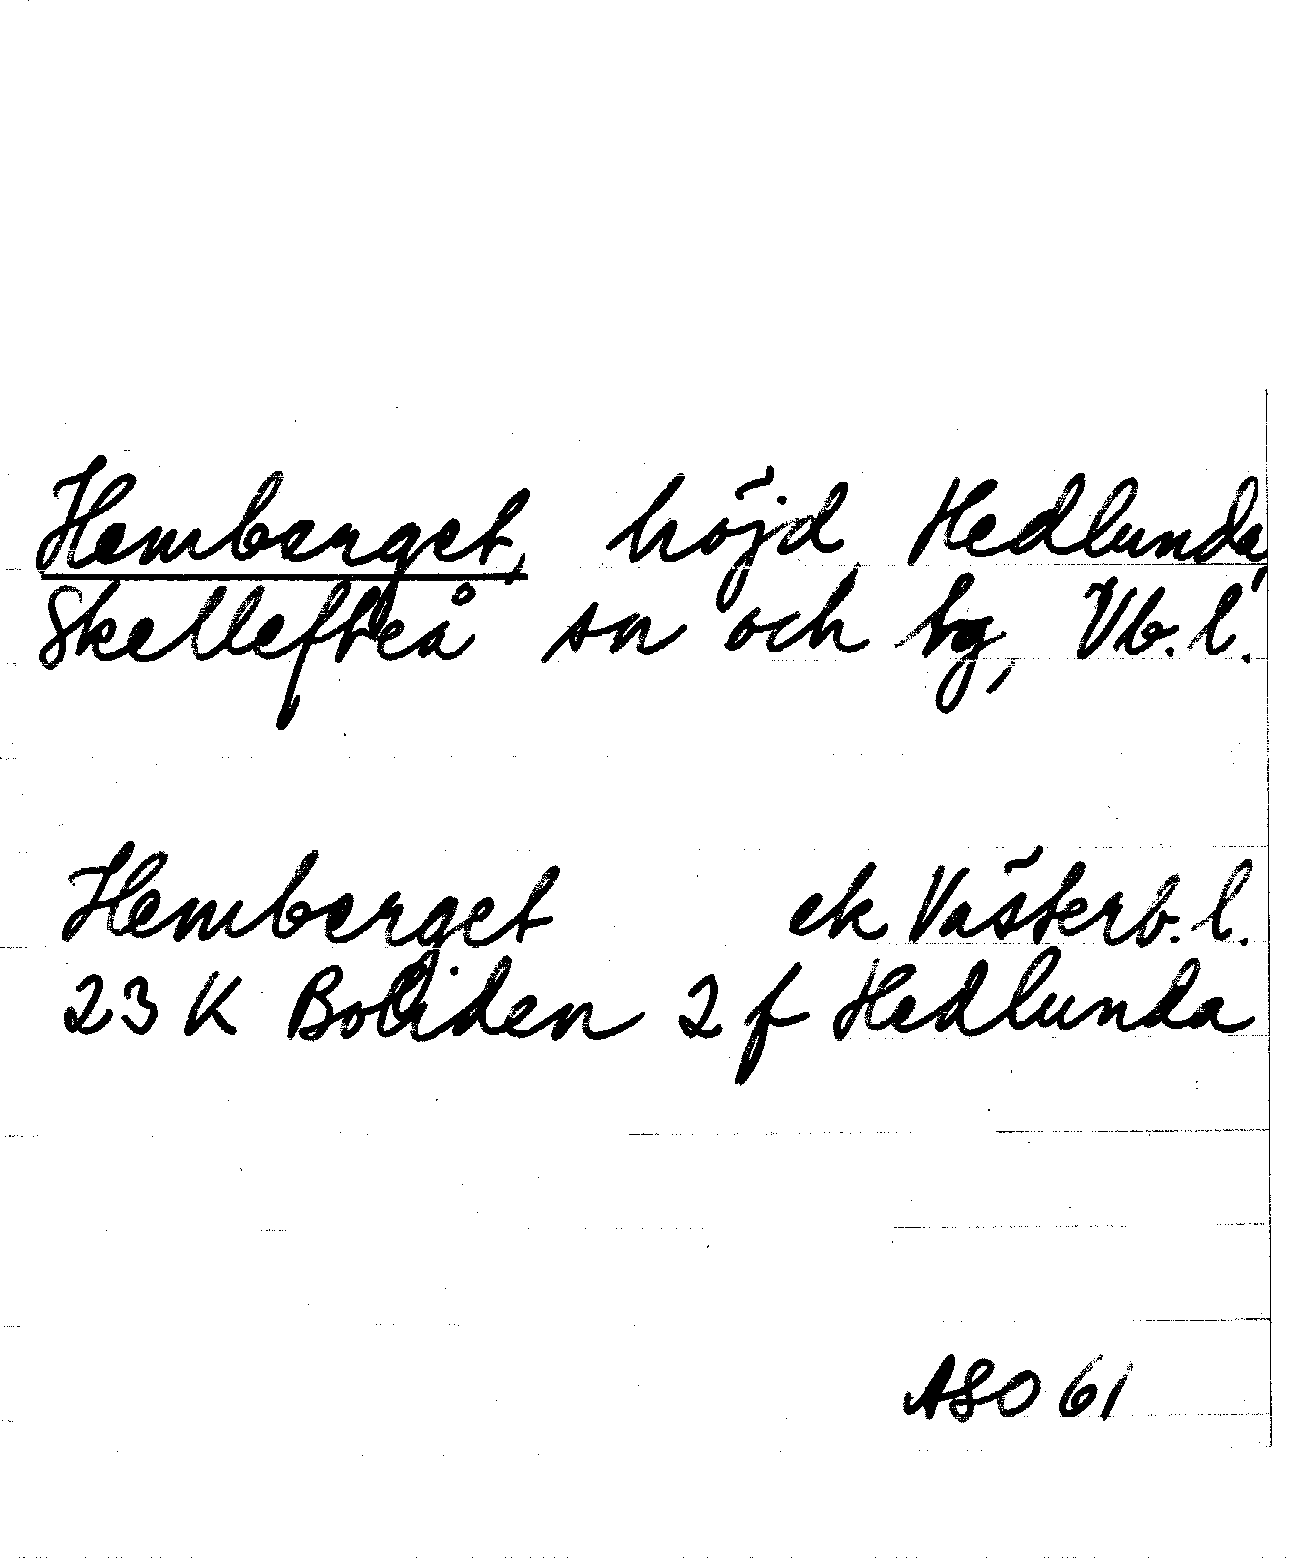 Hemberget, höjd Hedlunda,
Skellefteå sn och tg, Vb.l.
Hemberget ek Västerb.l.
23 K Boliden 2 f Hedlunda
ASO 61